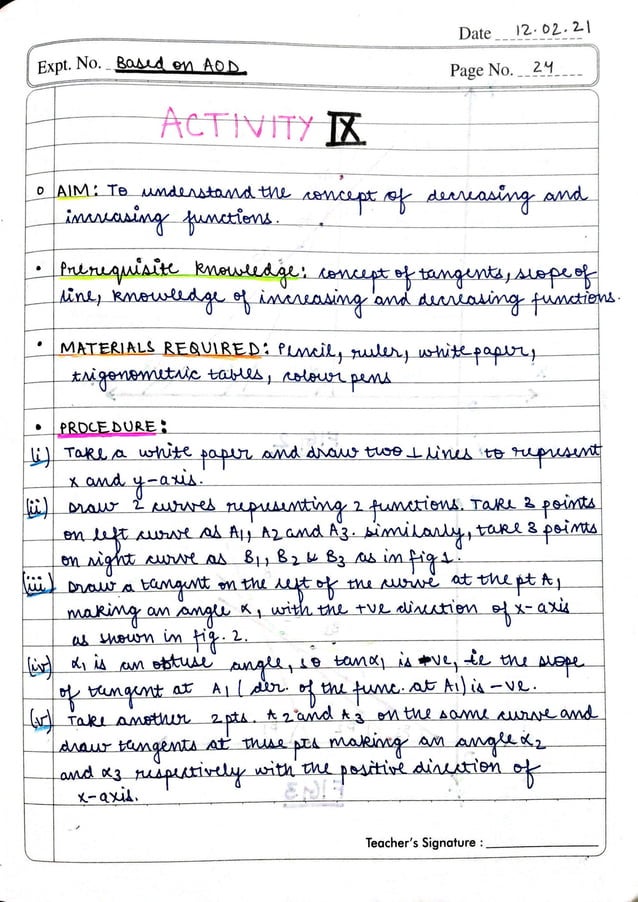 Date 12.02.21
Expt. No. Based on AOD
Page No. 24
ACTIVITY IX
o AIM: To understand the concept of decreasing and
increasing functions.
• Prerequisite knowledge: concept of tangents, slope of
line, knowledge of increasing and decreasing functions.
• MATERIALS REQUIRED: Pencil, ruler, white paper,
trigonometric tables, colour pens
• PROCEDURE:
(i) Take a white paper and draw two ⊥ lines to represent
x and y-axis.
(ii) Draw 2 curves representing 2 functions. Take 3 points
on left curve as A1, A2 and A3. Similarly, take 3 points
on right curve as B1, B2 & B3 as in fig 1.
(iii) Draw a tangent on the left of the curve at the pt A1
making an angle α1 with the +ve direction of x-axis
as shown in fig. 2.
(iv) α1 is an obtuse angle, so tanα1 is -ve, ie the slope
of tangent at A1 (der. of the func. at A1) is -ve.
(v) Take another 2 pts. A2 and A3 on the same curve and
draw tangents at these pts making an angle α2
and α3 respectively with the positive direction of
x-axis.
Teacher's Signature :